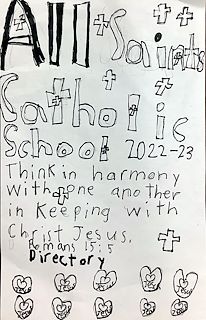 All Saints
Catholic
School 2022-23
Think in harmony
with one another
in Keeping with
Christ Jesus.
Romans 15:5
Directory